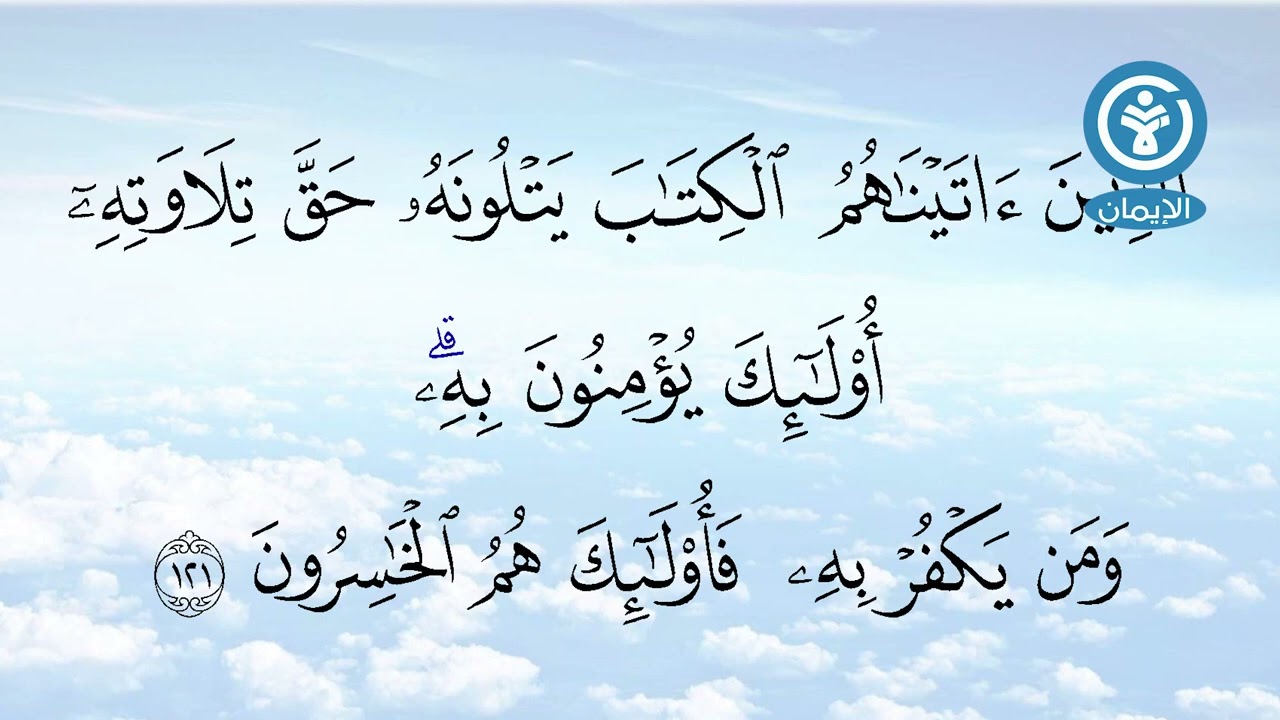 الإيمان
ٱلَّذِينَ ءَاتَيْنَٰهُمُ ٱلْكِتَٰبَ يَتْلُونَهُۥ حَقَّ تِلَاوَتِهِۦٓ
أُو۟لَٰٓئِكَ يُؤْمِنُونَ بِهِۦ ۗ
وَمَن يَكْفُرْ بِهِۦ فَأُو۟لَٰٓئِكَ هُمُ ٱلْخَٰسِرُونَ ١٢١